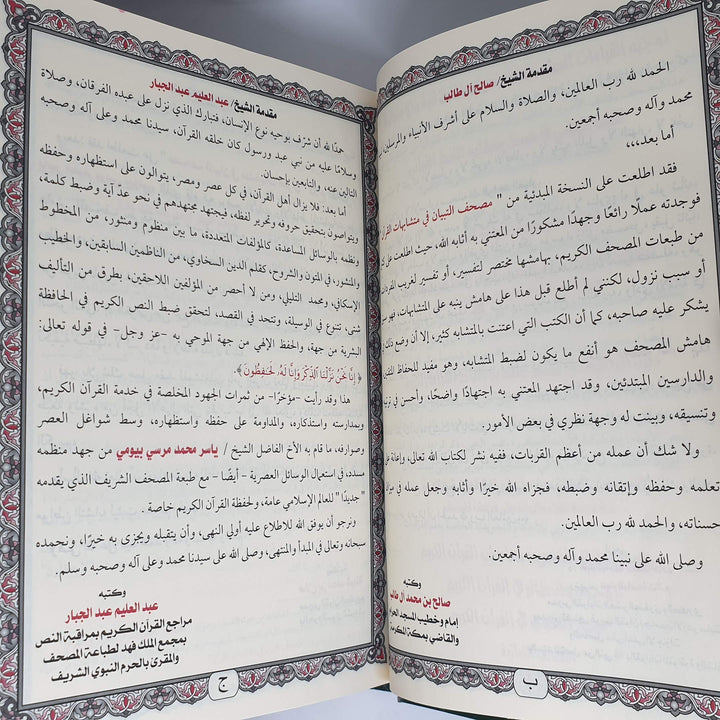 مقدمة الشيخ/ صالح آل طالب
الحمد لله رب العالمين، والصلاة والسلام على أشرف الأنبياء والمرسلين
محمد وآله وصحبه أجمعين.
أما بعد،،،
فقد اطلعت على النسخة المبدئية من " مصحف التبيان في متشابهات القرآن
فوجدته عملًا رائعًا وجهدًا مشكورًا من المعتني به أثابه الله، حيث اطلعت على
من طبعات المصحف الكريم، بهامشها مختصر لتفسير، أو تفسير لغريب
أو سبب نزول، لكنني لم أطلع قبل هذا على هامش ينبه على المتشابهات، فهو
يشكر عليه صاحبه، كما أن الكتب التي اعتنت بالمتشابه كثير، إلا أن وضع ذلك
هامش المصحف هو أنفع ما يكون لضبط المتشابه، وهو مفيد للحفاظ
والدارسين المبتدئين، وقد اجتهد المعتني به اجتهادًا واضحًا، وأحسن في
وتنسيقه، وبينت له وجهة نظري في بعض الأمور.
ولا شك أن عمله من أعظم القربات، ففيه نشر لكتاب الله تعالى، وإعانة على
تعلمه وحفظه وإتقانه وضبطه، فجزاه الله خيرًا وأثابه وجعل عمله في
حسناته، والحمد لله رب العالمين.
وصلى الله على نبينا محمد وآله وصحبه أجمعين.
وكتبه
صالح بن محمد آل طالب
إمام وخطيب المسجد الحرام
والقاضي بمكة المكرمة
ب
مقدمة الشيخ/ عبد العليم عبد الجبار
حمدًا لله أن شرّف بوحيه نوع الإنسان، فتبارك الذي نزل على عبده الفرقان، وصلاة
وسلامًا عليه من نبي عبد ورسول كان خلقه القرآن، سيدنا محمد وعلى آله وصحبه
التالين عنه، والتابعين بإحسان.
أما بعد: فلا يزال أهل القرآن، في كل عصر ومصر، يتوالون على استظهاره وحفظه
ويتواصون بتحقيق حروفه وتحرير لفظه، فيجتهد مجتهدهم في نحو عدّ آية وضبط كلمة،
ونظمه بالوسائل المساعدة، كالمؤلفات المتعددة، ما بين منظوم ومنثور، من المخطوط
والمنشور، في المتون والشروح، كقلم الدين السخاوي، من الناظمين السابقين، والخطيب
الإسكافي، ومحمد التليلي، ومن لا أحصر من المؤلفين اللاحقين، بطرق من التأليف
شتى، تتنوع في الوسيلة، وتتحد في القصد، لتحقق ضبط النص الكريم في الحافظة
البشرية من جهة، والحفظ الإلهي من جهة الموحي به -عز وجل- في قوله تعالى:
﴿ إِنَّا نَحْنُ نَزَّلْنَا ٱلذِّكْرَ وَإِنَّا لَهُۥ لَحَٰفِظُونَ ﴾.
هذا وقد رأيت -مؤخرًا- من ثمرات الجهود المخلصة في خدمة القرآن الكريم،
وبمدارسته واستذكاره، والمداومة على حفظه واستظهاره، وسط شواغل العصر
وصوارفه، ما قام به الأخ الفاضل الشيخ / ياسر محمد مرسي بيومي من جهد منظمه
مسدد، في استعمال الوسائل العصرية -أيضًا- مع طبعة المصحف الشريف الذي يقدمه
"جديدًا" للعالم الإسلامي عامة، ولحفظة القرآن الكريم خاصة .
ونرجو أن يوفق الله للاطلاع عليه أولي النهى، وأن يتقبله ويجزي به خيرًا، ونحمده
سبحانه وتعالى في المبدأ والمنتهى، وصلى الله على سيدنا محمد وعلى آله وصحبه وسلم .
وكتبه
عبد العليم عبد الجبار
مراجع القرآن الكريم بمراقبة النص
بمجمع الملك فهد لطباعة المصحف
والمقرئ بالحرم النبوي الشريف
ج